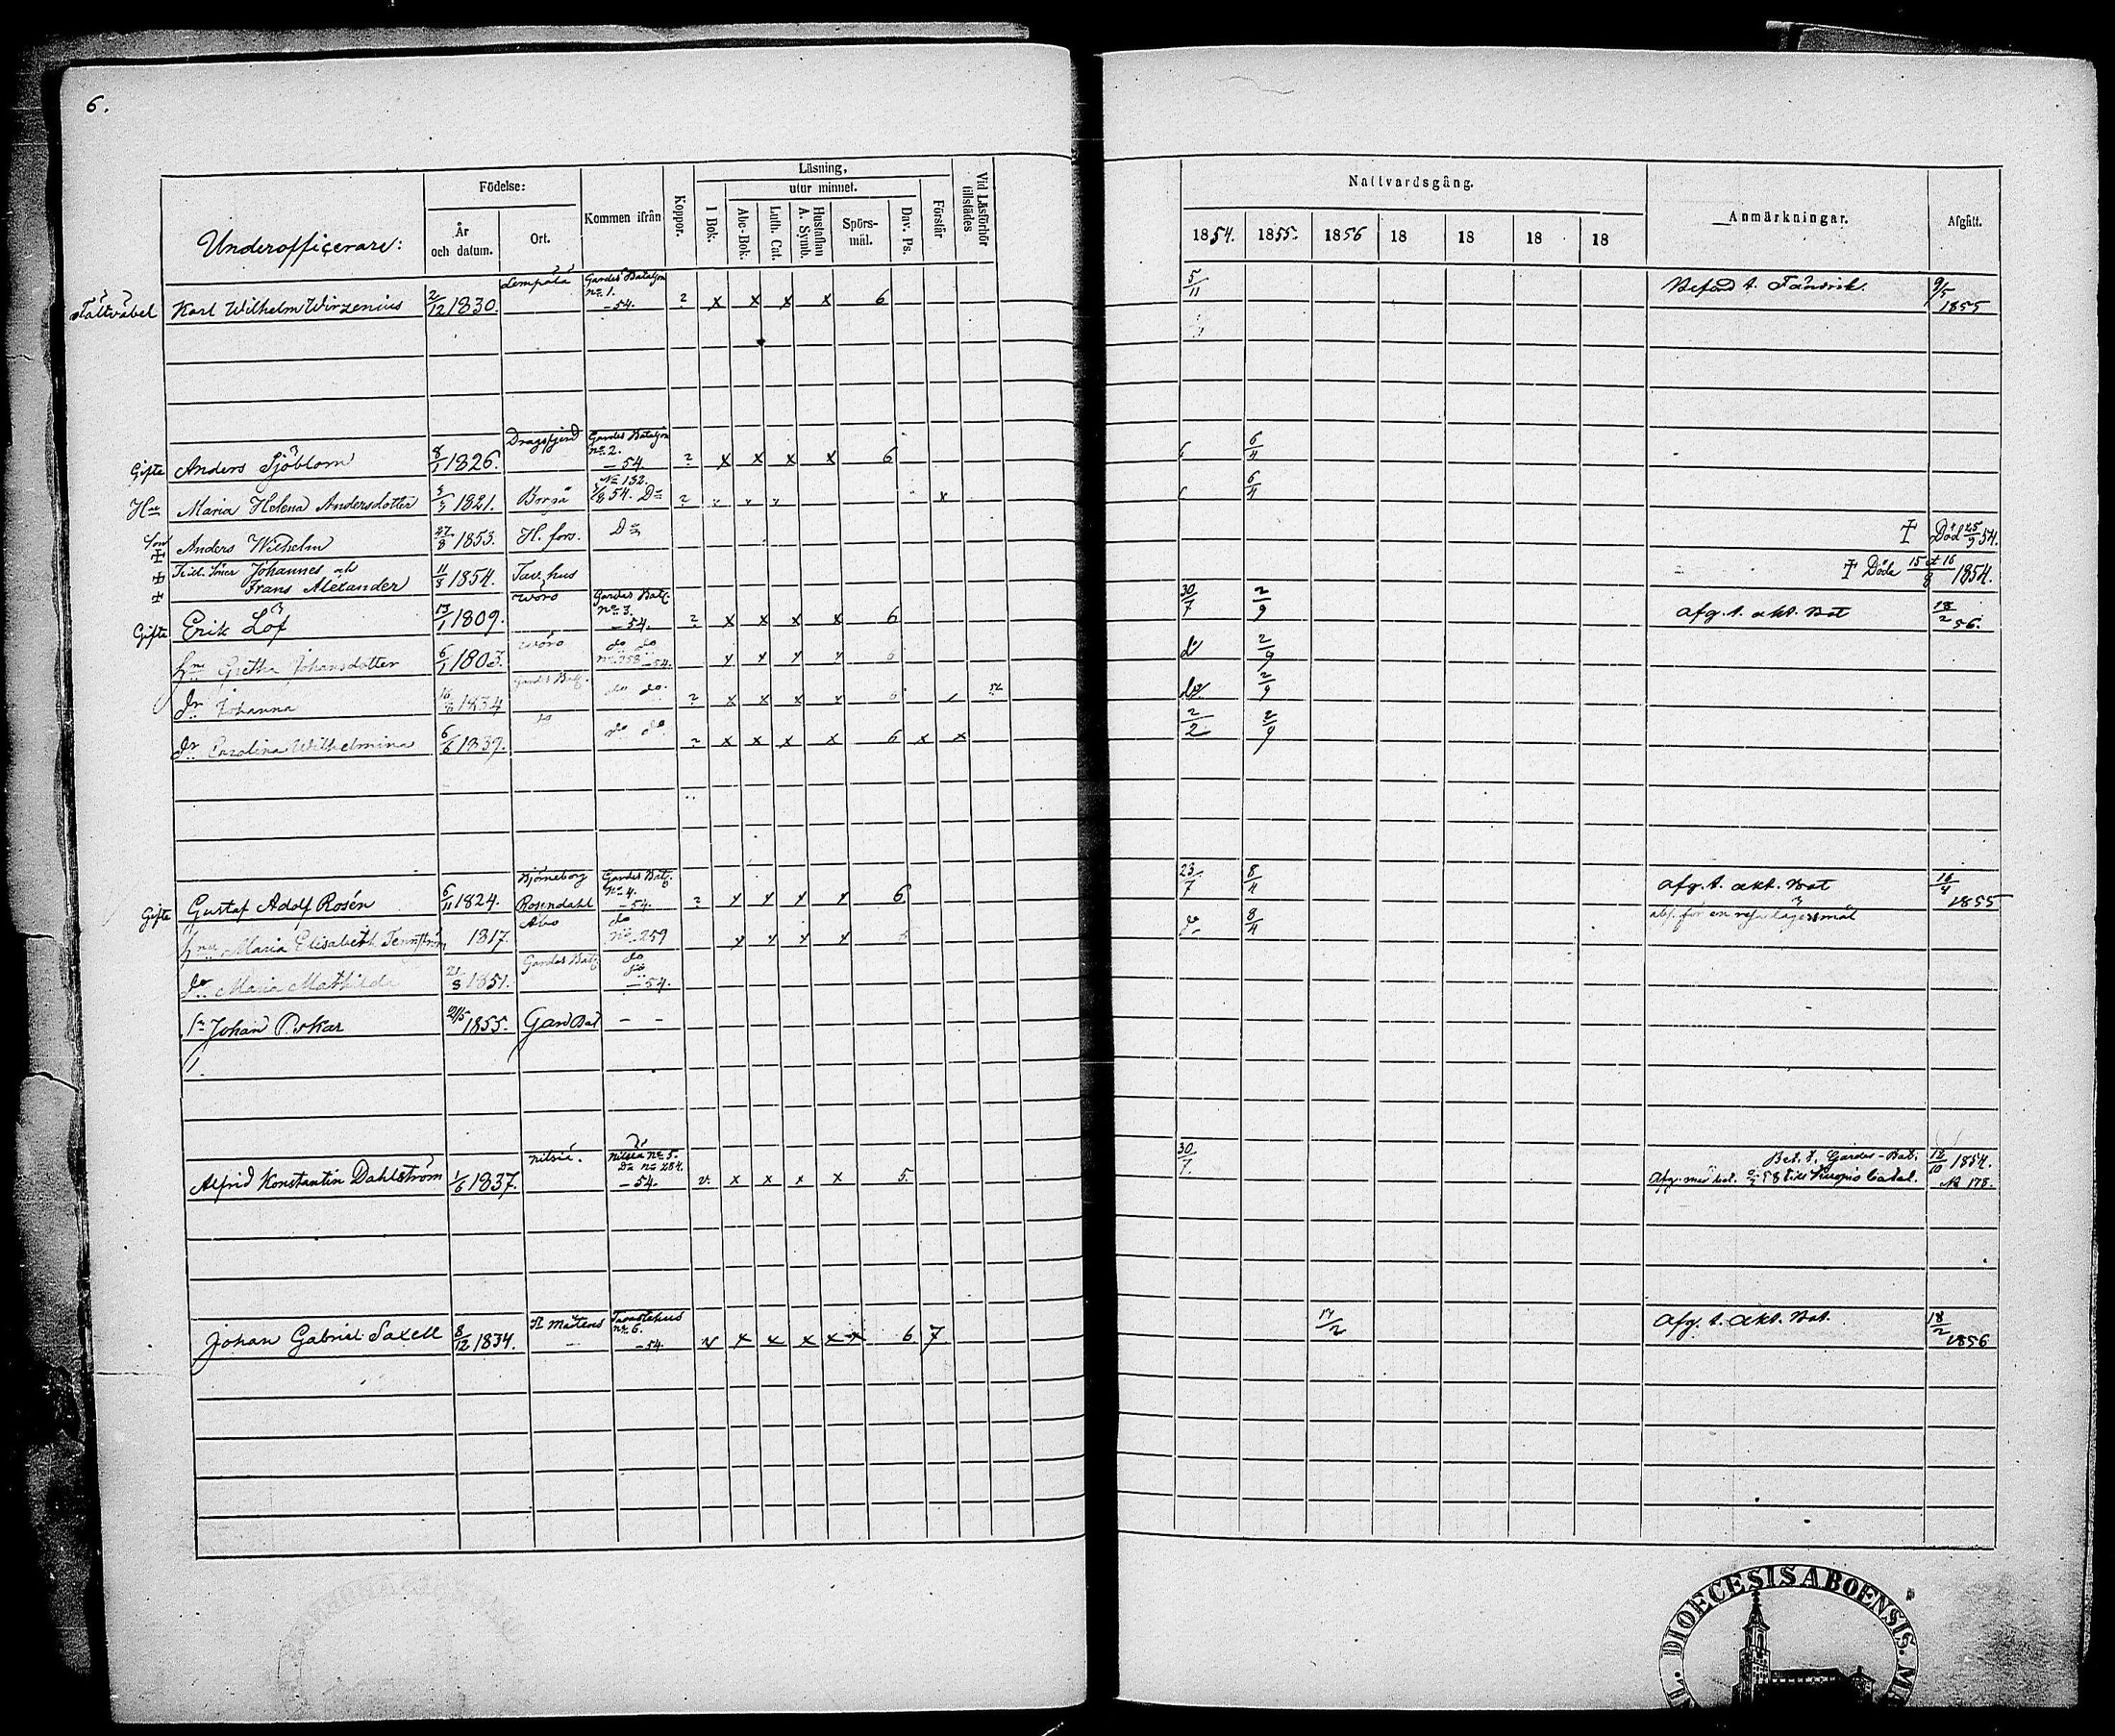 6.
Underofficerare:
Födelse:
År och datum.
Ort.
Kommen ifrån
Koppor.
Läsning,
utur minnet.
I Bok.
Abc-Bok.
Luth. Cat.
Hustaflan A. Symb.
Spörs-mål.
Dav. Ps.
Förstår
Vid Läsförhör tillstädes
Nattvardsgång.
1854. 1855. 1856 18 18 18 18
Anmärkningar.
Afgått.
Fältväbel Karl Wilhelm Wirzenius 2/12 1830. Lempälä Gardes Bataljon No 1. -54. 2 x x x x 6 5/11 Beford t. Fändrik. 9/5 1855
Gifte Anders Sjöblom 8/1 1826. Dragsfjerd Gardes Bataljon No 2. -54. 2 x x x x 6 6/4
Hu Maria Helena Andersdotter 1821. Borgå No 132. 54. Do 2 x 6/4
Son Anders Wilhelm 27/8 1853. H.fors. Do † Död 25/9 54.
Tvill. Söner Johannes och
Frans Alexander 11/8 1854. Tav.hus † Döde 15 et 16/8 1854.
Gifte Erik Löf 13/1 1809. Wörå Gardes Bat. No 3. -54. 2 x x x x 6 30/7 2/9 Afg. t. akt. Bat 18/2 56.
hu Gretha Johansdotter 6/1 1803. Wörå do do No 258 -54. 6 do 2/9
dr Johanna 1834 Gardes Bat. do do. 2 x x x x 6 do 2/9
dr Carolina Wilhelmina 6/6 1839. do do do. 2 x x x x 6 x x 2/2 2/9
Gifte Gustaf Adolf Rosén 6/11 1824. Björneborg Rosendahl Gardes Bat. No 4. -54. 2 6 23/7 8/4 Afg. t. akt. Bat 1855
hu Maria Elisabeth Tennström 1817. Åbo do No 259 do 8/4
dr Maria Mathilda 1851. Gardes Bat do do -54.
Sn Johan Oskar 21/5 1855. Gard Bat - -
Alfrid Konstantin Dahlström 1/6 1837. Nilsiä. Nilsiä No 5. Do No 284. -54. v. x x x x 5. 30/7. Bet. t. Gardes-Bat. 12/10 1854.
58 till Kuopio batal. No 178.
Johan Gabriel Saxell 8/12 1834. St Mårtens Tavastehus No 6. -54 v x x x x x 6 7 17/2 Afg. t. akt. Bat. 18/2 1856
DIOECESIS ABOENSIS.